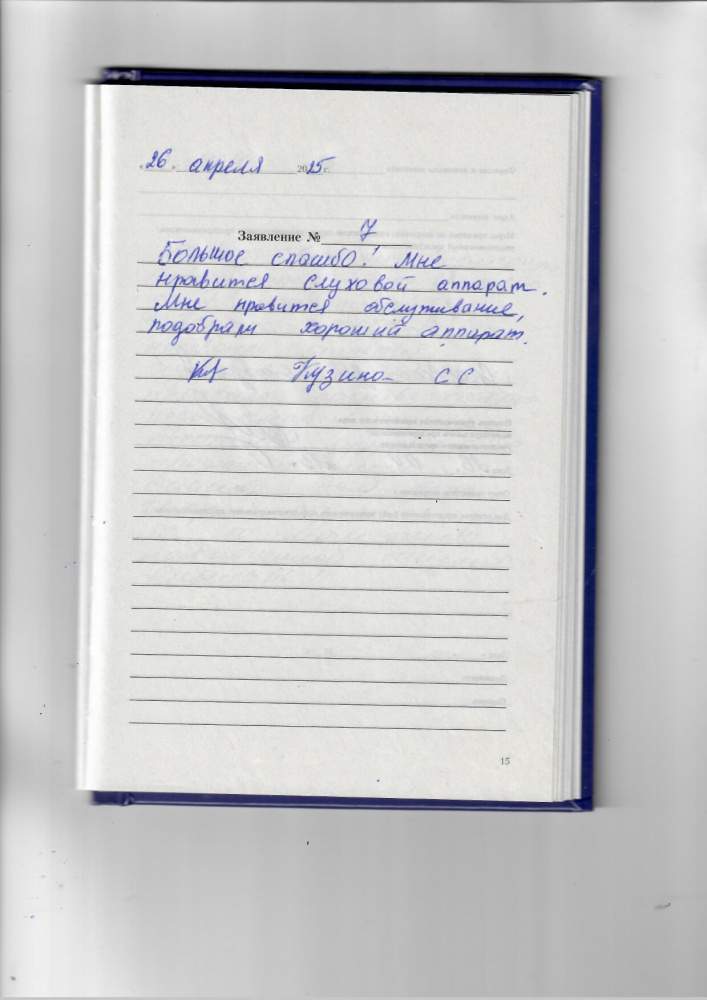 «26» апреля 2025 г.
Заявление № 7
Большое спасибо! Мне
нравится слуховой аппарат.
Мне нравится обслуживание,
подобрали хороший аппарат.
С С
15